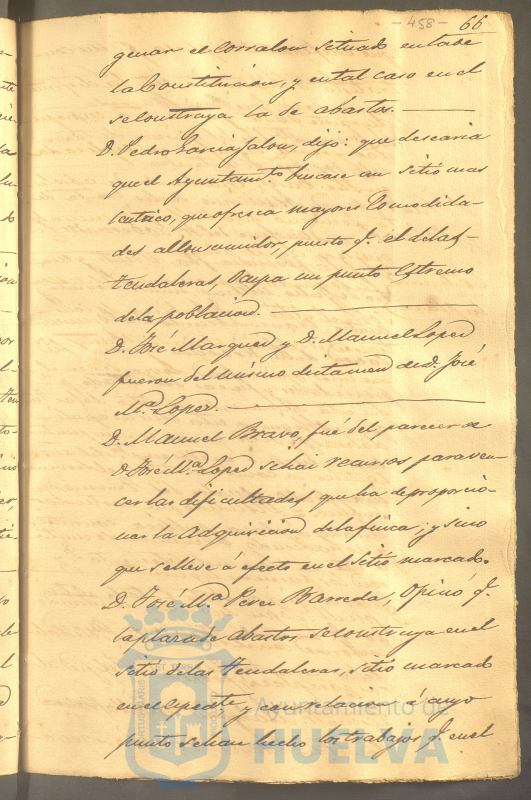 - 458 - 66
genar el Corralon situado en la de
la Constitucion, y en tal caso en el
se construya la de abastos.
D. Pedro Garcia Jalon, dijo: que desearia
que el Ayuntamto. buscase un sitio mas
centrico, que ofresca mayores Comodida-
des al Consumidor, puesto q. el de las
tendaleras, Ocupa un punto Estremo
de la poblacion.
D. José Marquez y D. Manuel Lopez
fueron del mismo dictamen de D. José
Ma. Lopez.
D. Manuel Bravo, fué del parecer de
D. José Ma. Lopez si hai recursos para ven-
cer las dificultades que ha de proporcio-
nar la Adquisicion de la finca; y sino
que se lleve á efecto en el Sitio marcado.
D. José Ma. Perez Barreda, Opinó q.
la plaza de abastos se construya en el
sitio de las tendaleras, sitio marcado
en el Espedte. y con relacion á cuyo
punto se han hecho los trabajos q. en el
Ayuntamiento de
HUELVA